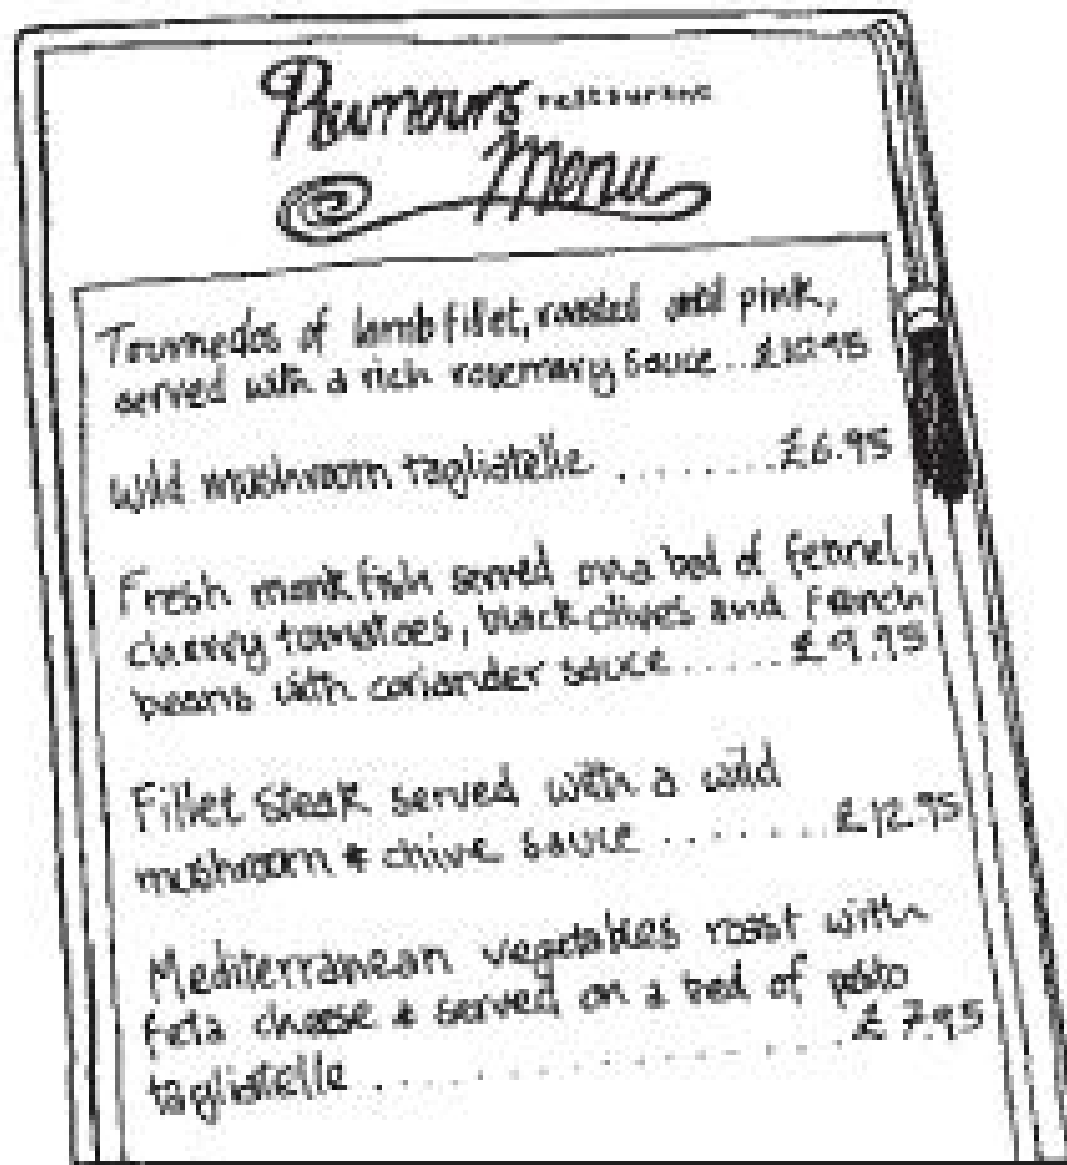 Rumours restaurant
Menu
Tournedos of lamb fillet, roasted until pink,
served with a rich rosemary sauce .. £10.95
Wild mushroom tagliatelle ........ £6.95
Fresh monkfish served on a bed of fennel,
cherry tomatoes, black olives and French
beans with coriander sauce ..... £9.95
Fillet steak served with a wild
mushroom & chive sauce ....... £12.95
Mediterranean vegetables roast with
feta cheese & served on a bed of pesto
tagliatelle .............. £7.95